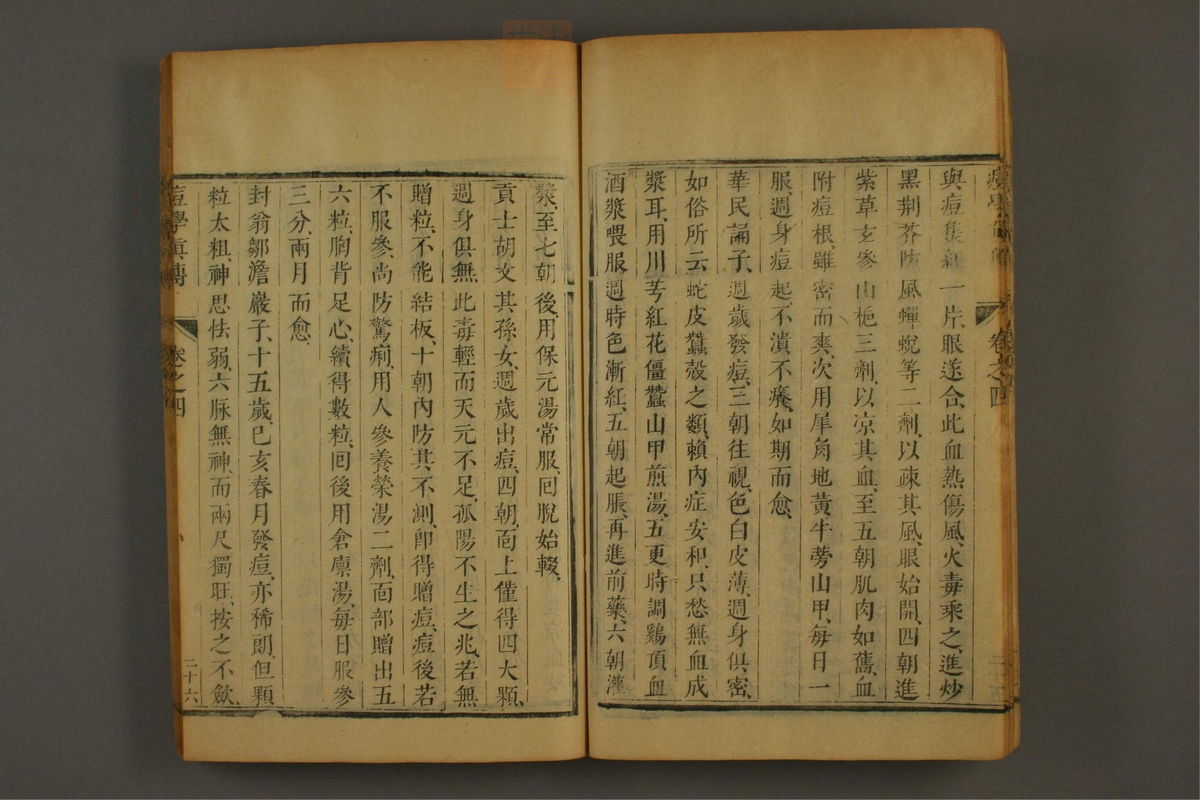 與痘集紅一片、眼遂合、此血熱傷風、火毒乘之、進炒
黑荆芥防風蟬蛻等二劑、以疎其風、眼始開、四朝進
紫草玄參山梔三劑、以凉其血、至五朝肌肉如舊、血
附痘根、雖密而爽、次用犀角地黃牛蒡山甲、每日一
服、週身痘起、不潰不癢、如期而愈、
華民誦子、週歲發痘、三朝往視、色白皮薄、週身俱密、
如俗所云蛇皮蠶殼之類、賴內症安和、只愁無血成
漿耳、用川芎紅花僵蠶山甲煎湯、五更時調鷄頂血
酒漿喂服、週時色漸紅、五朝起脹、再進前藥、六朝灌
漿、至七朝後、用保元湯常服、囘脫始輟、
貢士胡文其孫女、週歲出痘、四朝、面上僅得四大顆、
週身俱無、此毒輕而天元不足、孤陽不生之兆、若無
贈粒、不能結板、十朝內防其不測、卽得贈痘、痘後若
不服參、尚防驚痢、用人參養榮湯二劑、面部贈出五
六粒、胸背足心、續得數粒、囘後用倉廩湯、每日服參
三分、兩月而愈、
封翁鄒澹巖子、十五歲、己亥春月發痘、亦稀朗、但顆
粒太粗、神思怯弱、六脉無神、而兩尺獨旺、按之不歛、
痘學眞傳
卷之四
二十六